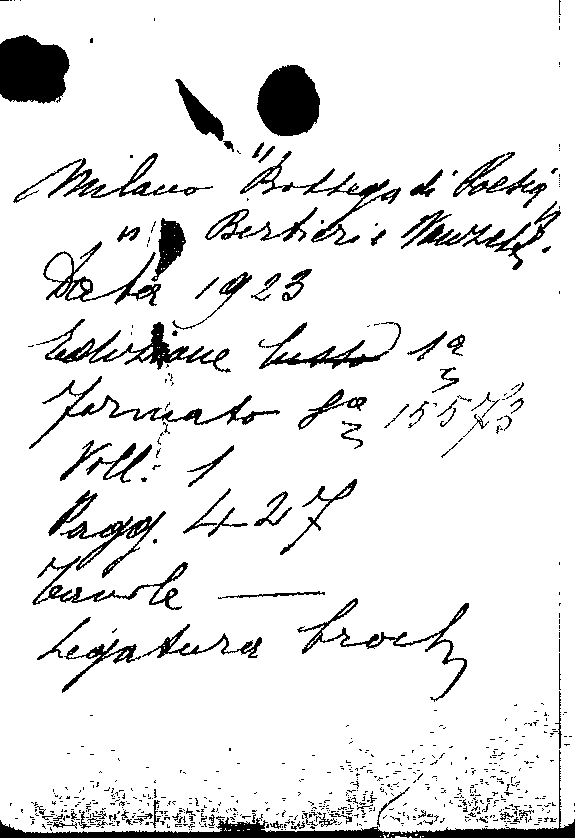 Milano "Bottega di Poesia"
" Bertieri e Vanzetti.
Data 1923
Edizione lusso 1a
Formato 8o 15573
Voll. 1
Pagg. 427
Tavole —
Legatura broch